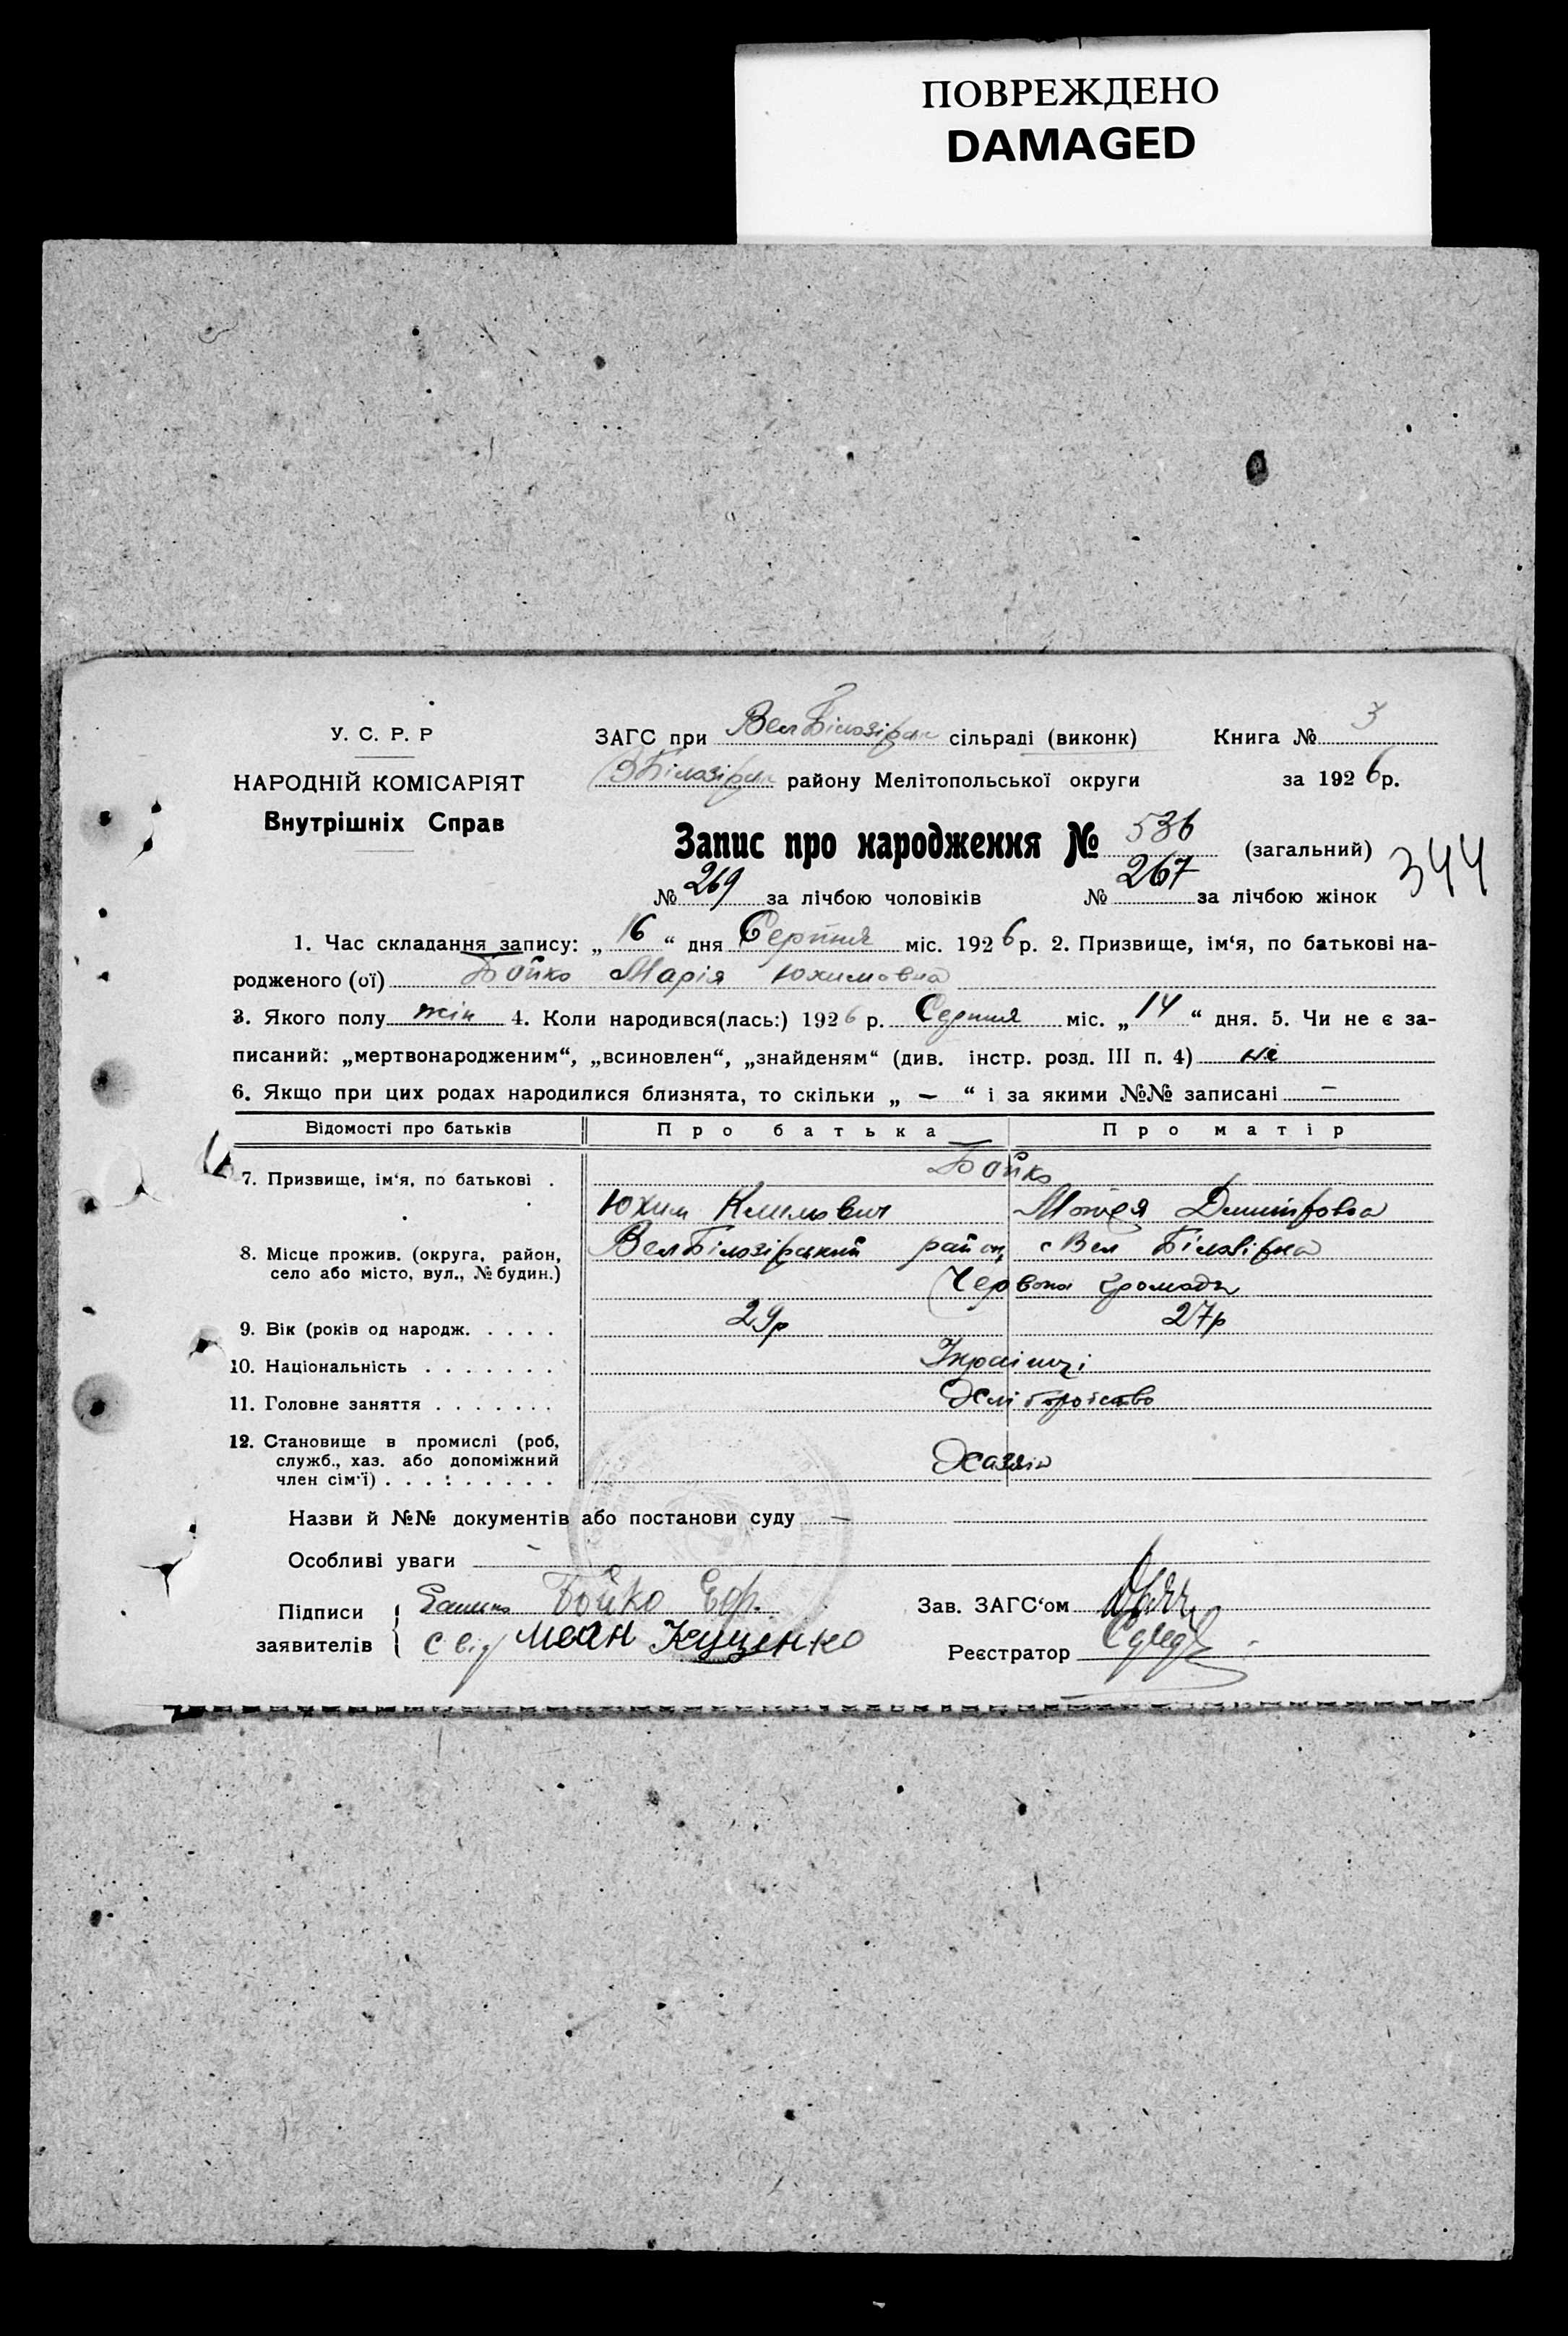 ПОВРЕЖДЕНО
DAMAGED
У. С. Р. Р
НАРОДНІЙ КОМІСАРІЯТ
Внутрішніх Справ
ЗАГС при ВелБілозірск сільраді (виконк) Книга № 3
ВБілозірск району Мелітопольської округи за 1926р.
Запис про народження № 536 (загальний)
344
№ 269 за лічбою чоловіків № 267 за лічбою жінок
1. Час складання запису: „16“ дня Серпня міс. 1926р. 2. Призвище, ім‘я, по батькові на-
родженого (ої) Бойко Марія Юхимовна
3. Якого полу жін 4. Коли народився(лась:) 1926 р. Серпня міс. „14“ дня. 5. Чи не є за-
писаний: „мертвонародженим“, „всиновлен“, „знайденям“ (див. інстр. розд. III п. 4) не
6. Якщо при цих родах народилися близнята, то скільки „ — “ і за якими №№ записані —
Відомості про батьків Про батька Про матір
7. Призвище, ім‘я, по батькові . Бойко
Юхим Климович Мотря
8. Місце прожив. (округа, район, село або місто, вул., № будин.) ВелБілозірський район с Вел Білозірка
Червона Громада
9. Вік (років од народж. . . . . 29р 27р
10. Національність . . . . . . . Українці
11. Головне заняття . . . . . . . Хліборобство
12. Становище в промислі (роб, служб., хаз. або допоміжний член сім‘ї) . . . . . . . . . Хазяін
Назви й №№ документів або постанови суду —
Особливі уваги —
Підписи заявителів { Бойко Еф. Зав. ЗАГС‘ом
Свід Иван Куценко Реєстратор